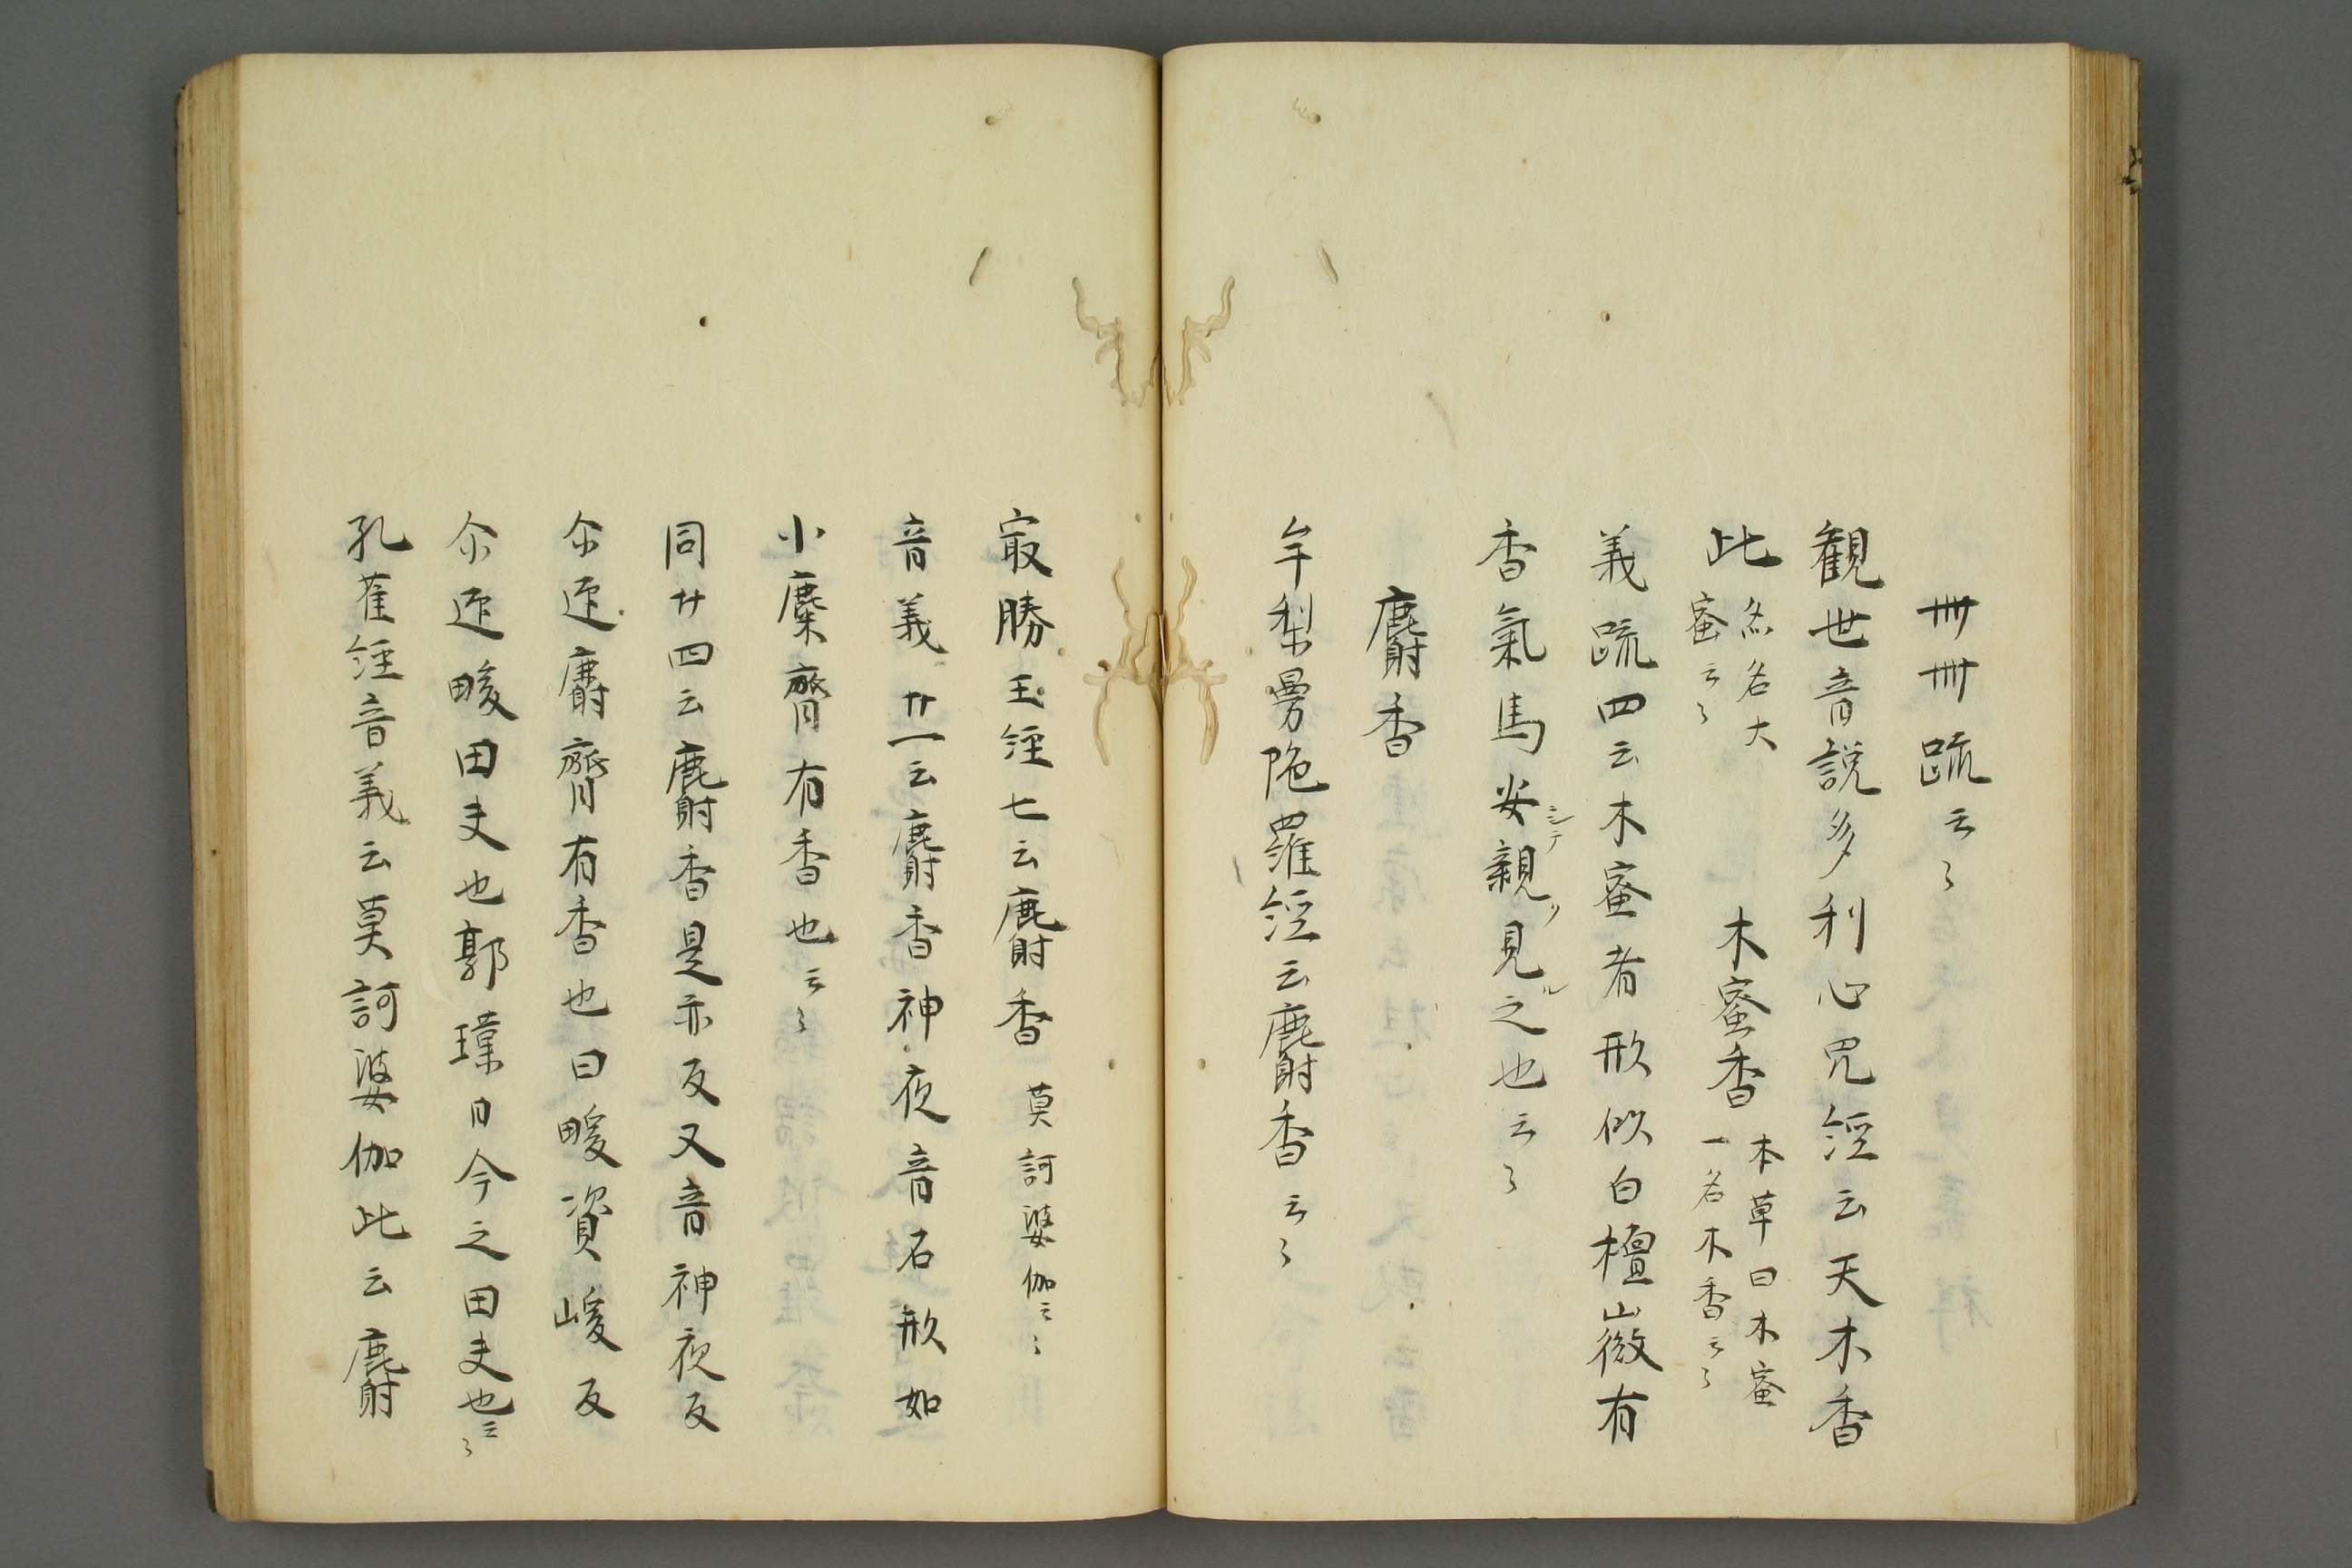 卌卌疏云々
観世音説多利心咒経云天木香
此亦名大蜜云々 木蜜香本草曰木蜜一名木香云々
義疏四云木蜜者形似白檀微有
香氣馬安親見之也云々
麝香
牟梨曼陁羅経云麝香云々
㝡勝王経七云麝香莫訶婆伽云々
音義廿一云麝香神夜音石形如
小麋齊有香也云々
同廿四云麝香是亦反又音神夜反
尒迊麝齊有香也曰畯資峻反
尒迊畯田夫也郭璞曰今之田夫也云々
孔雀経音義云莫訶婆伽此云麝